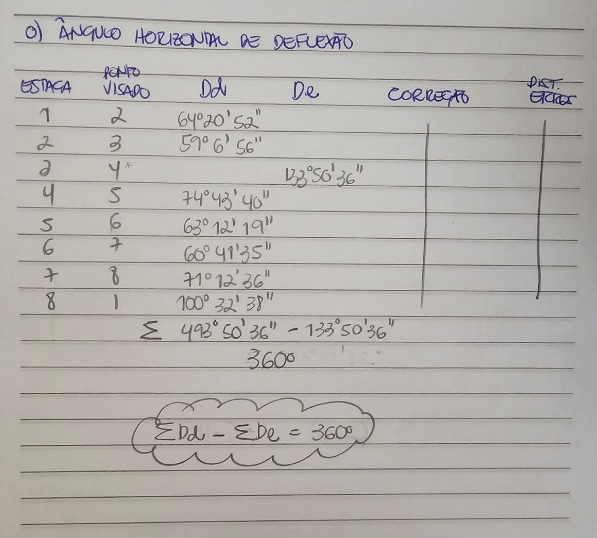 O) ÂNGULO HORIZONTAL DE DEFLEXÃO
ESTACA PONTO VISADO Dd De CORREÇÃO DIST.
1 2 64°20'52"
2 3 59°6'56"
3 4* 133°50'36"
4 5 74°43'40"
5 6 63°12'19"
6 7 60°41'35"
7 8 71°12'36"
8 1 100°32'38"
Σ 493°50'36" - 133°50'36"
360°
ΣDd - ΣDe = 360°